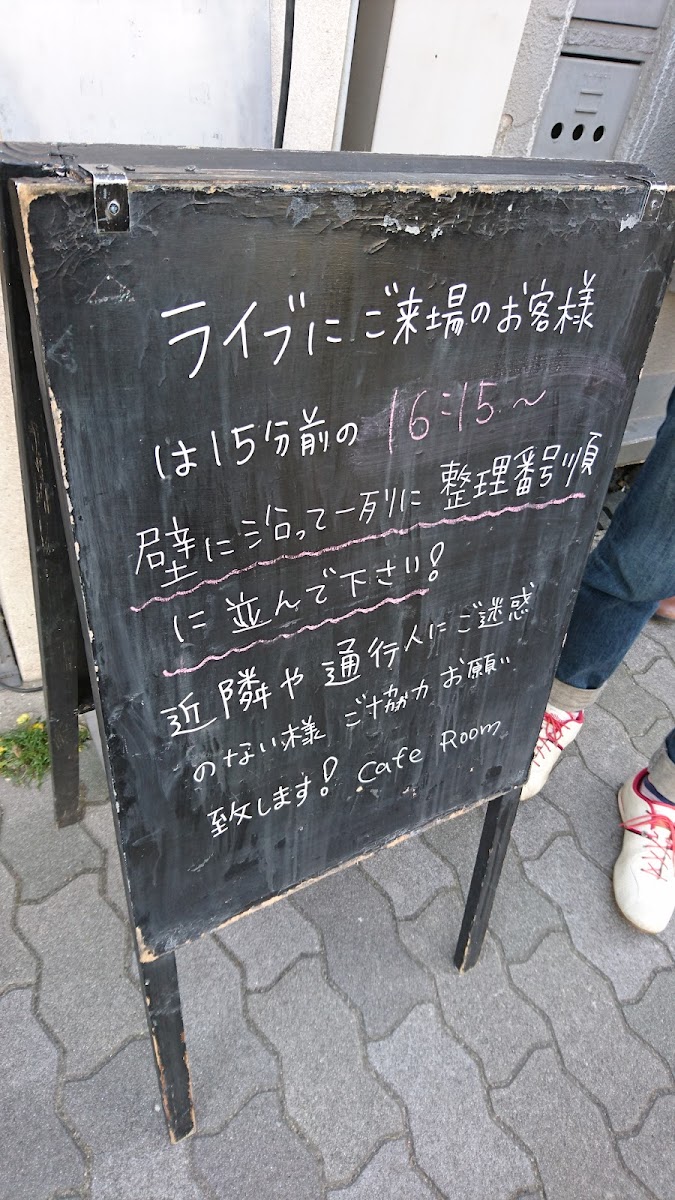 ライブにご来場のお客様
は15分前の16:15～
壁に沿って一列に整理番号順
に並んで下さい!
近隣や通行人にご迷惑
のない様ご協力お願い
致します! Cafe Room